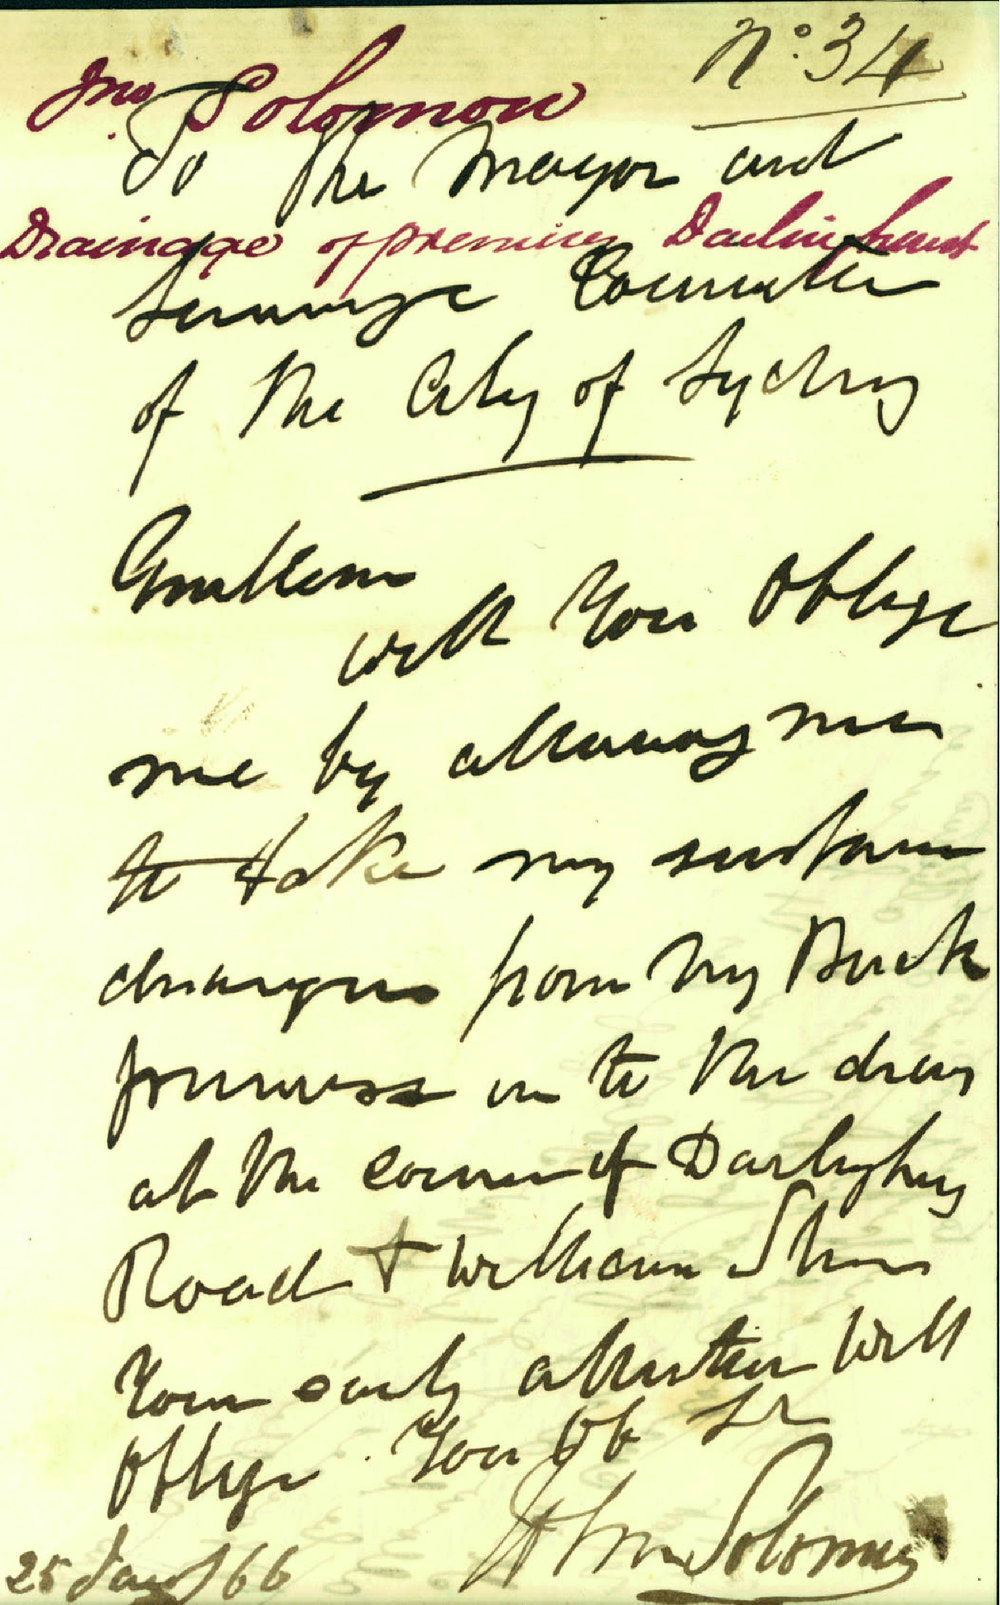 No. 34
Jno Solomon
To The Mayor and
Drainage of premises Darlinghurst
Sewerage Committee
of the City of Sydney
Gentlemen
will You Oblige
me by allowing me
to take my surface
drainage from my Back
premises in to the drain
at the corner of Darlinghurst
Road & William Street
Your early attention will
Oblige Your Ob St
Solomon
25 Jany /66